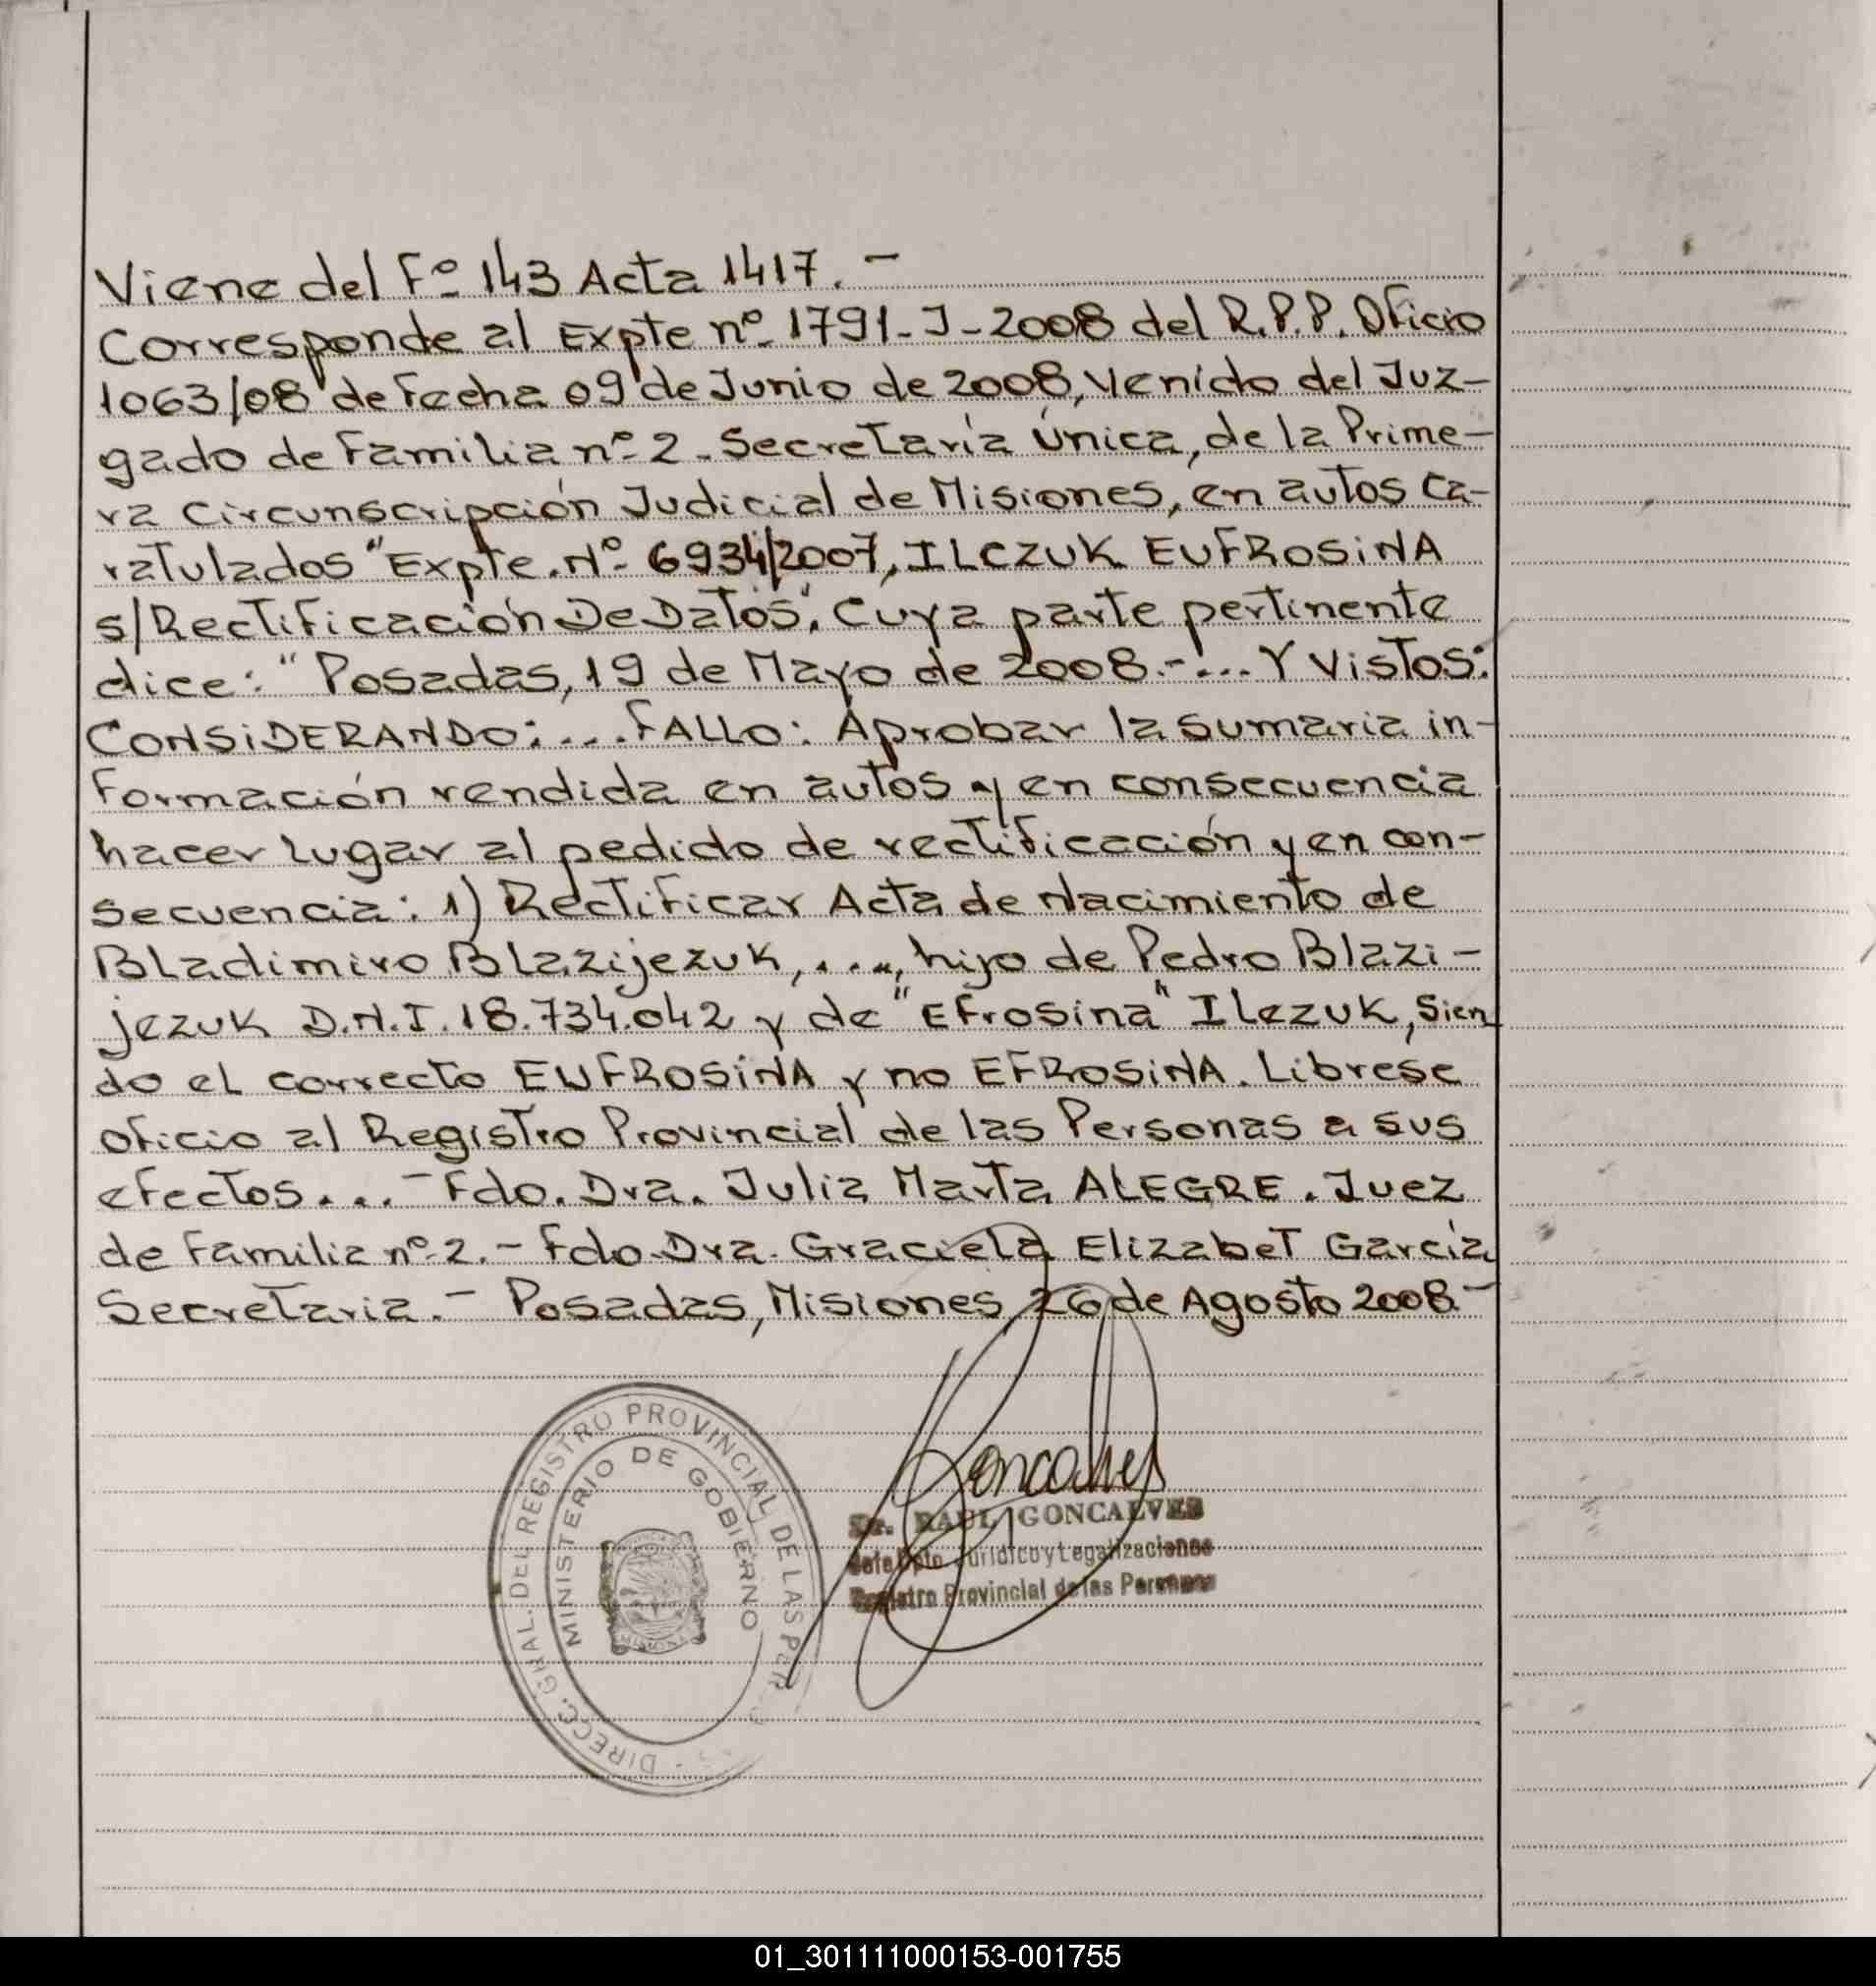 Viene del Fº 143 Acta 1417.-
Corresponde al Expte nº 1791-J-2008 del R.P.P. Oficio
1063/08 de Fecha 09 de Junio de 2008, venido del Juz-
gado de Familia nº 2-Secretaría Única, de la Prime-
ra Circunscripción Judicial de Misiones, en autos ca-
ratulados "Expte. Nº 6934/2007, ILCZUK EUFROSINA
s/Rectificación De Datos". Cuya parte pertinente
dice: "Posadas, 19 de Mayo de 2008.-... Y Vistos:
CONSIDERANDO:...FALLO: Aprobar la sumaria in-
formación rendida en autos y en consecuencia
hacer lugar al pedido de rectificación y en con-
secuencia: 1) Rectificar Acta de Nacimiento de
Bladimiro Blazijezuk, ..., hijo de Pedro Blazi-
jezuk D.N.I. 18.734.042 y de "Efrosina" Ilezuk, Sien
do el correcto EUFROSINA y no EFROSINA. Librese
oficio al Registro Provincial de las Personas a sus
efectos...-Fdo. Dra. Julia Marta ALEGRE. Juez
de Familia nº 2.- Fdo. Dra. Graciela Elizabet García
Secretaria.- Posadas, Misiones, 26 de Agosto 2008.-
DIRECC. GRAL. DEL REGISTRO PROVINCIAL DE LAS PER
MINISTERIO DE GOBIERNO
MISIONES
Goncalves
Dr. RAUL GONCALVES
Jefe Dpto. Jurídico y Legalizaciones
Registro Provincial de las Personas
01_301111000153-001755